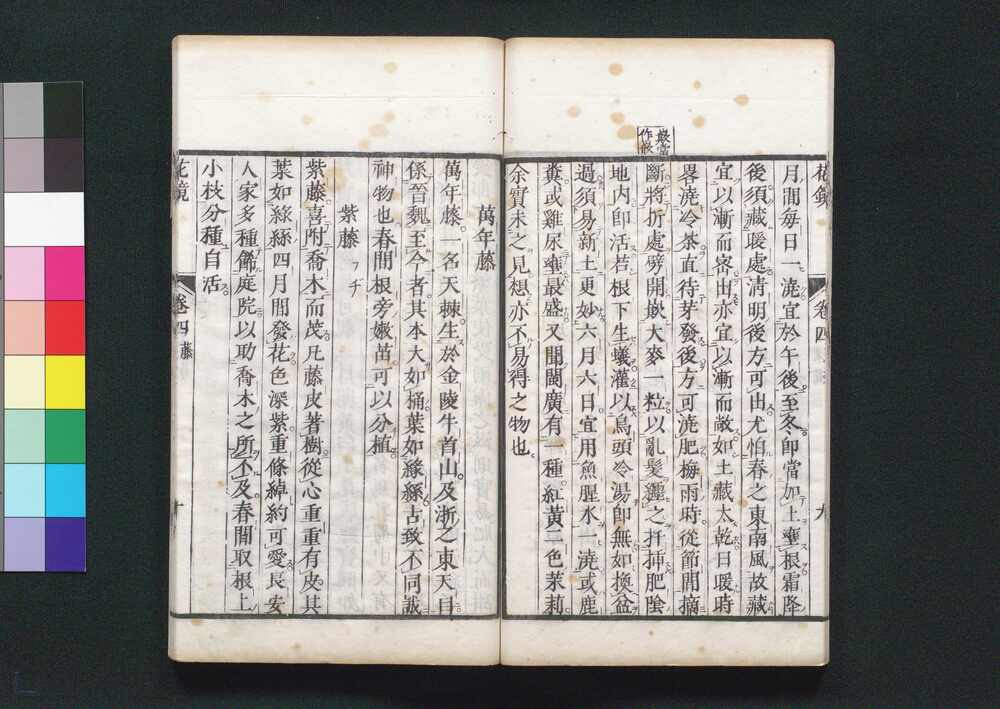 花鏡
卷四
九
嵌當
作嵌
月間每日一澆宜於午後至冬即當加土壅根霜降
後須藏暖處清明後方可出尤怕春之東南風故藏
宜以漸而密出亦宜以漸而敞如土藏太乾日暖時
畧澆冷茶直待芽發後方可澆肥梅雨時從節間摘
斷將折處劈開嵌大麥一粒以亂髮纏之扦挿肥陰
地內即活若根下生蟻灌以烏頭冷湯即無如換盆
過須易新土更妙六月六日宜用魚腥水一澆或鹿
糞或雞尿壅最盛又聞閩廣有一種紅黃二色茉莉
余實未之見想亦不易得之物也
萬年藤
萬年藤一名天棘生於金陵牛首山及浙之東天目
係晉魏至今者其本大如桶葉如綠絲古致不同誠
神物也春間根旁嫩苗可以分植
紫藤 フヂ
紫藤喜附喬木而茂凡藤皮著樹從心重重有皮其
葉如綠絲四月間發花色深紫重條綽約可愛長安
人家多種飾庭院以助喬木之所不及春開取根上
小枝分種自活
花鏡
卷四 藤
十